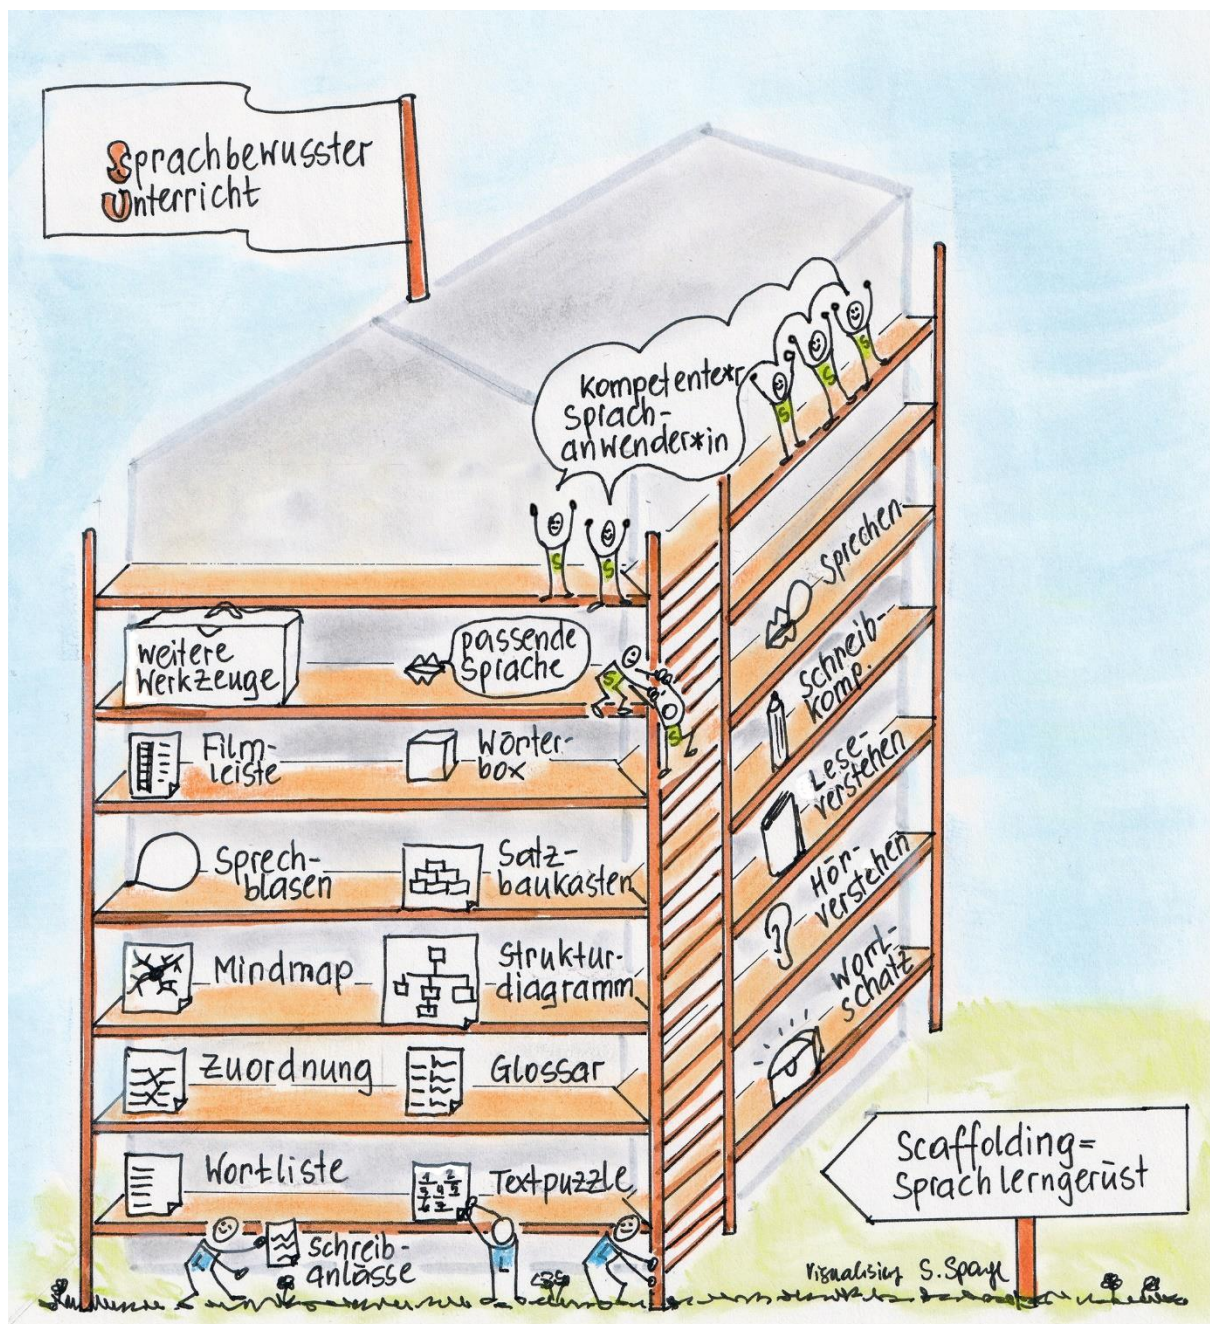 Sprachbewusster
Unterricht
kompetente*r
Sprach-
anwender*in
S
S
S
S
S
weitere
Werkzeuge
passende
Sprache
S
S
Film-
leiste
Wörter-
box
Sprech-
blasen
Satz-
baukasten
Mindmap
Struktur-
diagramm
Zuordnung
Glossar
Wortliste
Textpuzzle
Schreib-
anlässe
L
L
L
Sprechen
Schreib-
komp.
Lese-
verstehen
Hör-
verstehen
Wort-
schatz
Scaffolding=
Sprachlerngerüst
S.